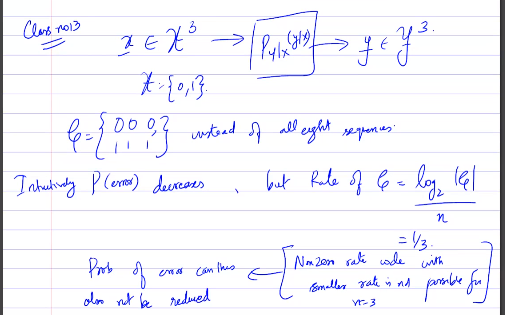 Class no 13
x ∈ X^3 → P_{Y|X}(y|x) → y ∈ Y^3.
X = {0,1}.
C = { 0 0 0, 1 1 1 } instead of all eight sequences.
Intuitively P(error) decreases, but Rate of C = log_2 |C| / n
= 1/3.
Prob of error can thus also not be reduced ← [ Nonzero rate code with smaller rate is not possible for n=3 ]